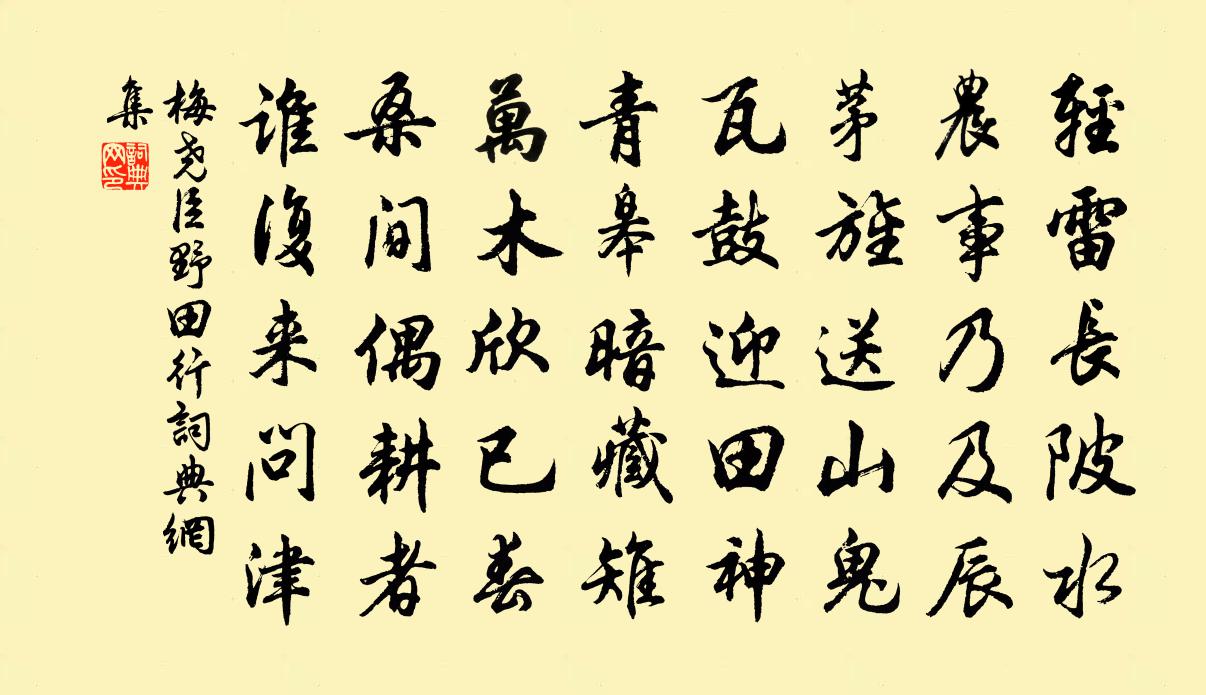 輕雷長陂水
農事乃及辰
茅旌送山鬼
瓦鼓迎田神
青皋暗藏雉
萬木欣已春
桑間偶耕者
誰復来問津
梅堯臣野田行詞典網
集
詞典
网印